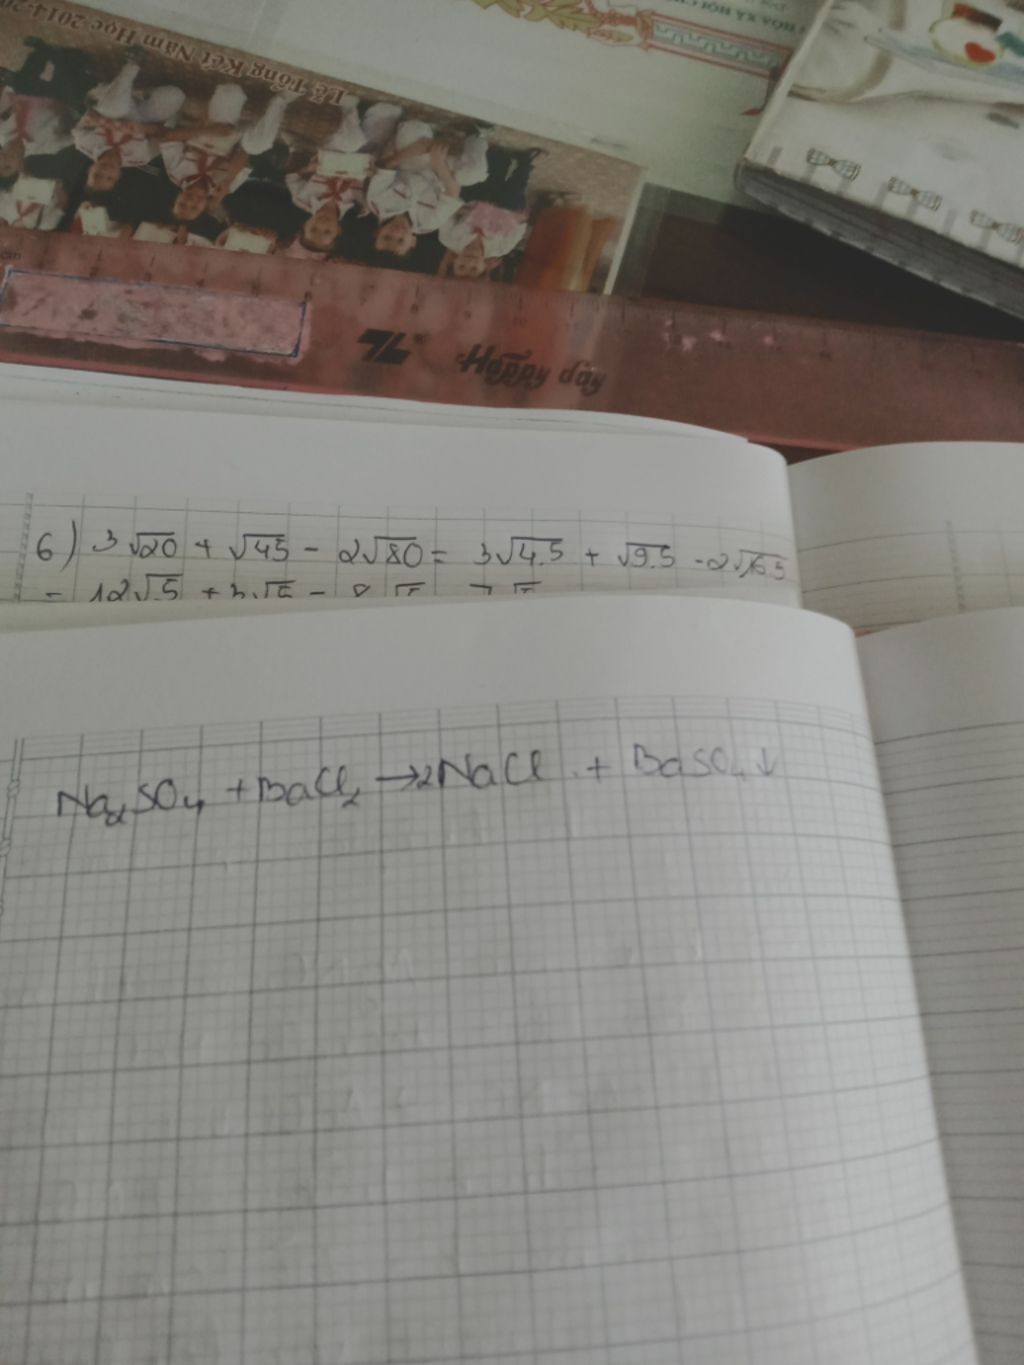 HÒA XÃ HỘI CH
Lễ Tổng Kết Năm Học 2014-20
cm
Happy day
6) 3√20 + √45 - 2√80 = 3√4.5 + √9.5 - 2√16.5
= 12√5 + 3√5 - 8√5 7√5
Na₂SO₄ + BaCl₂ → 2NaCl + BaSO₄↓